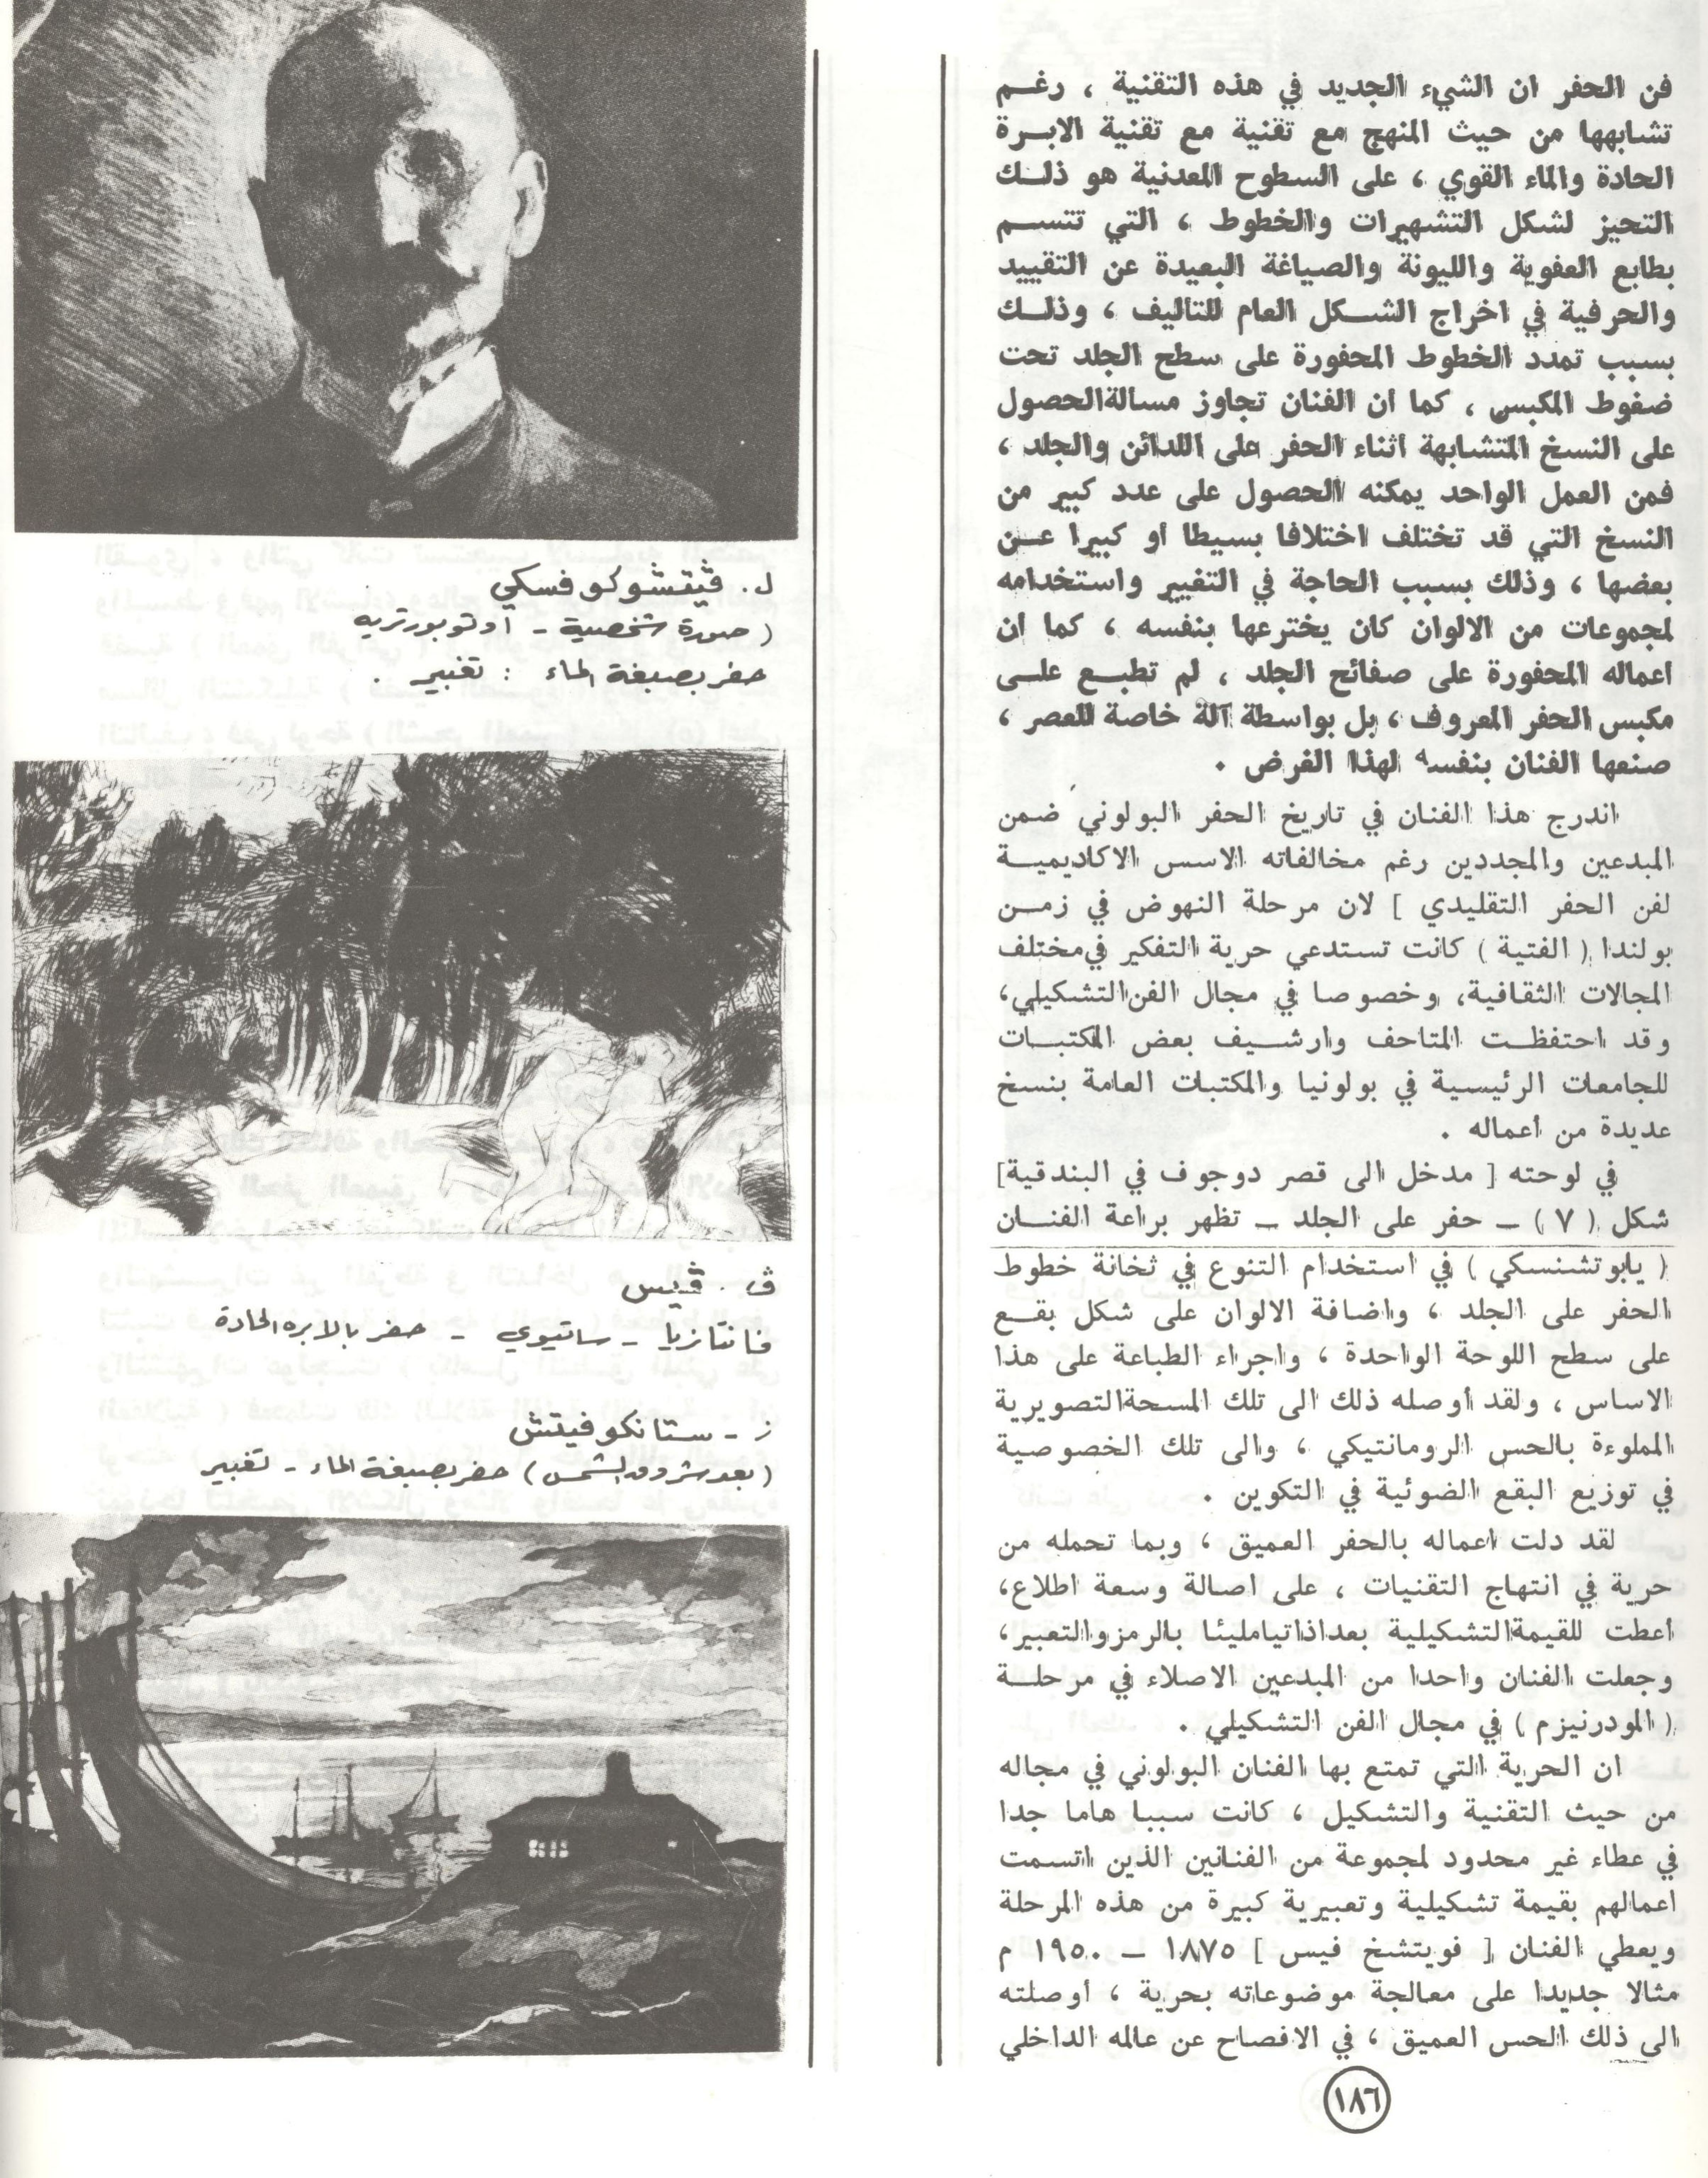 فن الحفر ان الشيء الجديد في هذه التقنية ، رغم
تشابهها من حيث المنهج مع تقنية مع تقنية الابرة
الحادة والماء القوي ، على السطوح المعدنية هو ذلك
التحيز لشكل التشهيرات والخطوط ، التي تتسم
بطابع العفوية والليونة والصياغة البعيدة عن التقييد
والحرفية في اخراج الشكل العام للتاليف ، وذلك
بسبب تمدد الخطوط المحفورة على سطح الجلد تحت
ضغوط المكبس ، كما ان الفنان تجاوز مسالة الحصول
على النسخ المتشابهة اثناء الحفر على اللدائن والجلد ،
فمن العمل الواحد يمكنه الحصول على عدد كبير من
النسخ التي قد تختلف اختلافا بسيطا او كبيرا عن
بعضها ، وذلك بسبب الحاجة في التغيير واستخدامه
لمجموعات من الالوان كان يخترعها بنفسه ، كما ان
اعماله المحفورة على صفائح الجلد ، لم تطبع على
مكبس الحفر المعروف ، بل بواسطة آلة خاصة للعصر ،
صنعها الفنان بنفسه لهذا الغرض .
اندرج هذا الفنان في تاريخ الحفر البولوني ضمن
المبدعين والمجددين رغم مخالفاته الاسس الاكاديمية
لفن الحفر التقليدي ] لان مرحلة النهوض في زمن
بولندا ( الفتية ) كانت تستدعي حرية التفكير في مختلف
المجالات الثقافية، وخصوصا في مجال الفن التشكيلي،
وقد احتفظت المتاحف وارشيف بعض المكتبات
للجامعات الرئيسية في بولونيا والمكتبات العامة بنسخ
عديدة من أعماله .
في لوحته [ مدخل الى قصر دوجوف في البندقية]
شكل ( ٧ ) ـ حفر على الجلد ـ تظهر براعة الفنان
( يابوتشنسكي ) في استخدام التنوع في ثخانة خطوط
الحفر على الجلد ، واضافة الالوان على شكل بقع
على سطح اللوحة الواحدة ، واجراء الطباعة على هذا
الاساس ، ولقد أوصله ذلك الى تلك المسحة التصويرية
المملوءة بالحس الرومانتيكي ، والى تلك الخصوصية
في توزيع البقع الضوئية في التكوين .
لقد دلت اعماله بالحفر العميق ، وبما تحمله من
حرية في انتهاج التقنيات ، على اصالة وسعة اطلاع،
أعطت للقيمة التشكيلية بعدا ذاتيا مليئا بالرمز والتعبير،
وجعلت الفنان واحدا من المبدعين الاصلاء في مرحلة
( المودرنيزم ) في مجال الفن التشكيلي .
ان الحرية التي تمتع بها الفنان البولوني في مجاله
من حيث التقنية والتشكيل ، كانت سببا هاما جدا
في عطاء غير محدود لمجموعة من الفنانين الذين اتسمت
اعمالهم بقيمة تشكيلية وتعبيرية كبيرة من هذه المرحلة
ويعطي الفنان [ فويتشخ فيس ] ١٨٧٥ ـ ١٩٥٠ م
مثالا جديدا على معالجة موضوعاته بحرية ، أوصلته
الى ذلك الحس العميق ، في الافصاح عن عالمه الداخلي
١٨٦
ل. ڤيتشوكوفسكي
( صورة شخصية - اوتوبورتريه
حفر بصبغة الماء : تغبير .
ڤ . ڤيس
فانتازيا - ساتيوي - حفر بالابره الحادة
ز - ستانكوفيتش
( بعد شروق الشمس ) حفر بصبغة الماء - تغبير